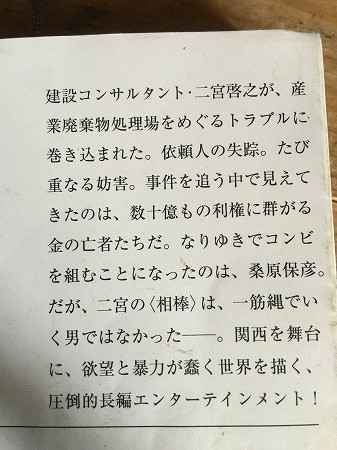 建設コンサルタント・二宮啓之が、産
業廃棄物処理場をめぐるトラブルに
巻き込まれた。依頼人の失踪。たび
重なる妨害。事件を追う中で見えて
きたのは、数十億もの利権に群がる
金の亡者たちだ。なりゆきでコンビ
を組むことになったのは、桑原保彦。
だが、二宮の〈相棒〉は、一筋縄でい
く男ではなかった――。関西を舞台
に、欲望と暴力が蠢く世界を描く、
圧倒的長編エンターテインメント！